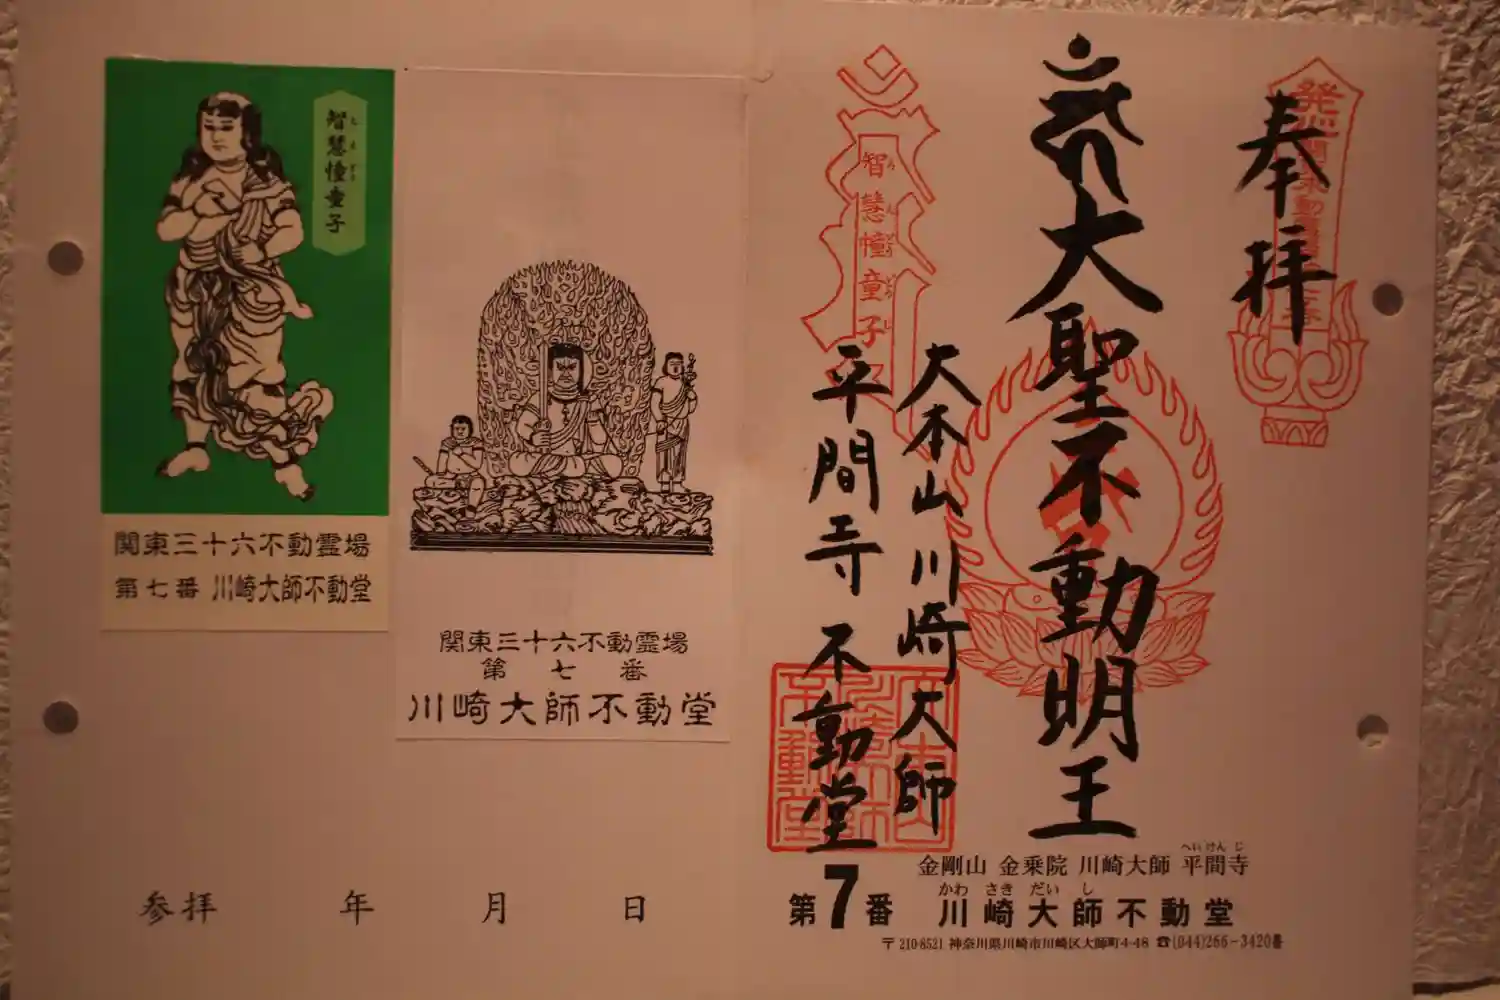 奉拝
大聖不動明王
大本山川崎大師
平間寺不動堂
智慧幢童子
金剛山 金乗院 川崎大師 平間寺
へいけんじ
第7番 川崎大師不動堂
かわさきだいし
〒210-8521 神奈川県川崎市川崎区大師町4-48 ☎(044)266-3420番
智慧幢童子
関東三十六不動霊場
第七番 川崎大師不動堂
関東三十六不動霊場
第七番
川崎大師不動堂
参拝 年 月 日